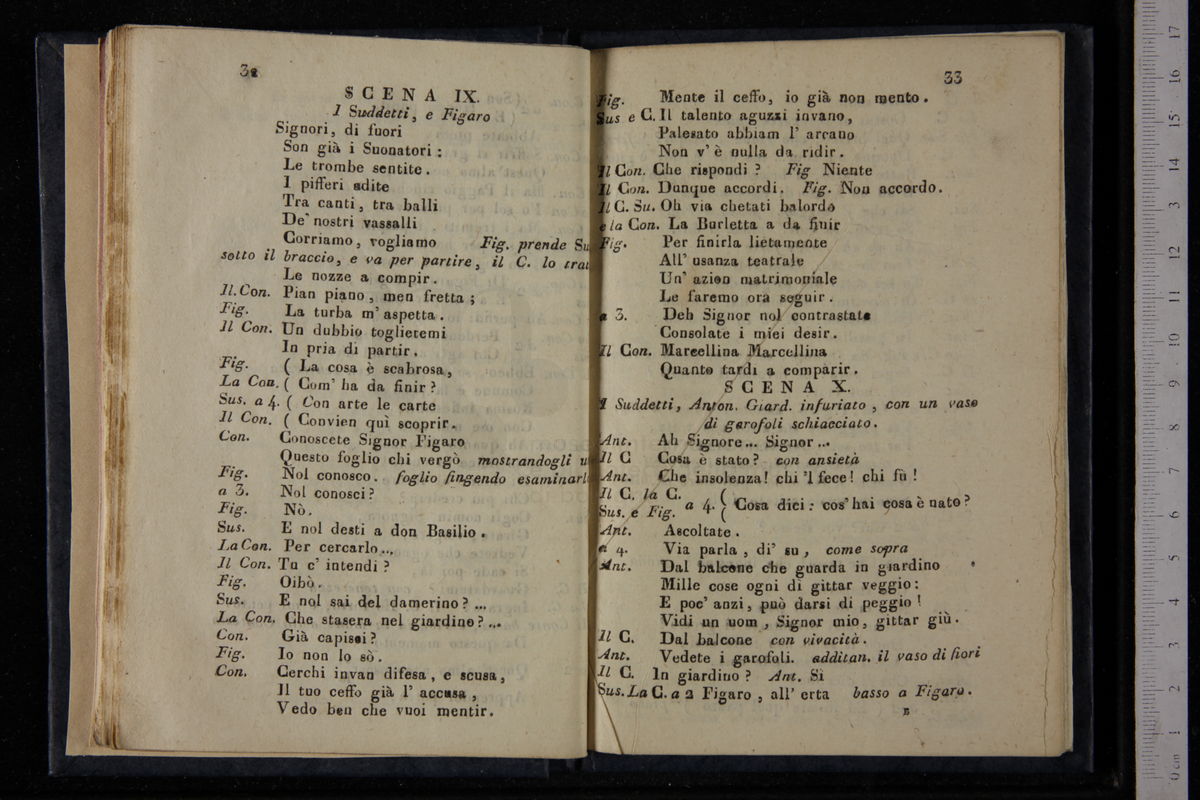 32
SCENA IX.
I Suddetti, e Figaro
Signori, di fuori
Son già i Suonatori:
Le trombe sentite.
I pifferi udite
Tra canti, tra balli
De' nostri vassalli
Corriamo, vogliamo Fig. prende Su
sotto il braccio, e va per partire, il C. lo trat
Le nozze a compir.
Il. Con. Pian piano, men fretta;
Fig. La turba m' aspetta.
Il Con. Un dubbio toglietemi
In pria di partir.
Fig. ( La cosa è scabrosa,
La Con. ( Com' ha da finir?
Sus. a 4. ( Con arte le carte
Il Con. ( Convien quì scoprir.
Con. Conoscete Signor Figaro
Questo foglio chi vergò mostrandogli u
Fig. Nol conosco. foglio fingendo esaminarl
a 3. Nol conosci?
Fig. Nò.
Sus. E nol desti a don Basilio.
La Con. Per cercarlo...
Il Con. Tu c' intendi?
Fig. Oibò.
Sus. E nol sai del damerino? ...
La Con. Che stasera nel giardino? ...
Con. Già capisci?
Fig. Io non lo sò.
Con. Cerchi invan difesa, e scusa,
Il tuo ceffo già l' accusa,
Vedo ben che vuoi mentir.
33
Fig. Mente il ceffo, io già non mento.
Sus e C. Il talento aguzzi invano,
Palesato abbiam l' arcano
Non v' è nulla da ridir.
Il Con. Che rispondi? Fig Niente
Il Con. Dunque accordi. Fig. Non accordo.
Il C. Su. Oh via chetati balordo
e la Con. La Burletta a da finir
Fig. Per finirla lietamente
All' usanza teatrale
Un' azion matrimoniale
Le faremo ora seguir.
a 3. Deh Signor nol contrastate
Consolate i miei desir.
Il Con. Marcellina Marcellina
Quanto tardi a comparir.
SCENA X.
I Suddetti, Anton. Giard. infuriato, con un vaso
di garofoli schiacciato.
Ant. Ah Signore... Signor...
Il C Cosa è stato? con ansietà
Ant. Che insolenza! chi 'l fece! chi fù!
Il C. la C.
Sus. e Fig. a 4. Cosa dici: cos' hai cosa è nato?
Ant. Ascoltate.
a 4. Via parla, di' su, come sopra
Ant. Dal balcone che guarda in giardino
Mille cose ogni dì gittar veggio:
E poc' anzi, può darsi di peggio!
Vidi un uom, Signor mio, gittar giù.
Il C. Dal balcone con vivacità.
Ant. Vedete i garofoli. additan. il vaso di fiori
Il C. In giardino? Ant. Sì
Sus. La C. a 2 Figaro, all' erta basso a Figaro.